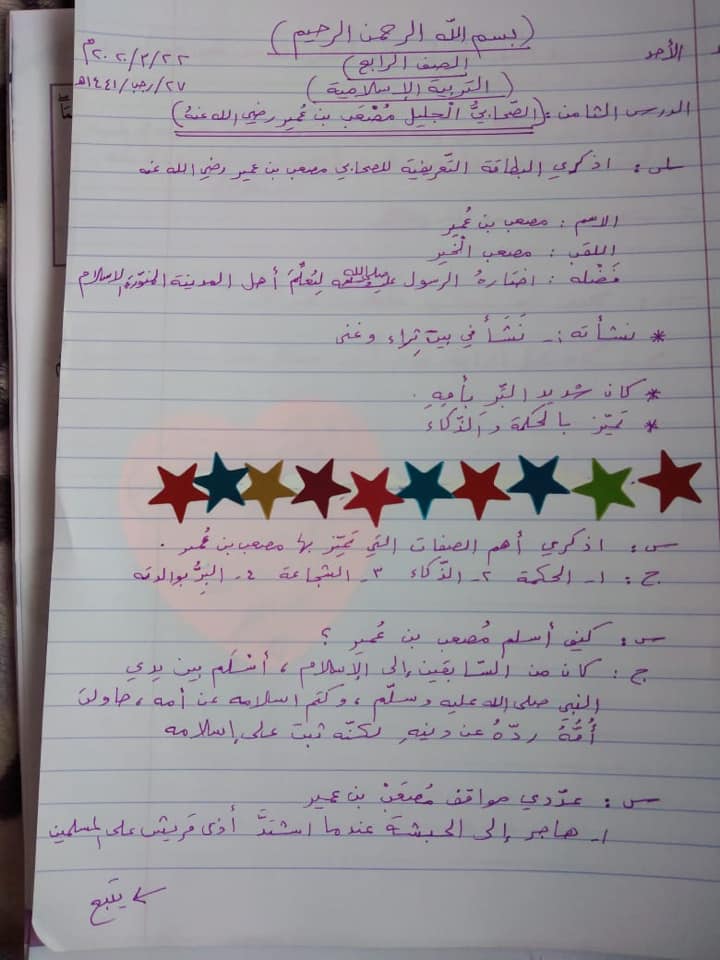 (بسم الله الرحمن الرحيم)
الأحد
(الصف الرابع)
٢٠٢٠/٣/٢٢م
(التربية الإسلامية)
٢٧/رجب/١٤٤١هـ
الدرس الثامن: (الصّحابيُّ الْجليل مُصْعَب بن عُمير رضي الله عنهُ)
س: اذكري البطاقة التّعريفية للصحابي مصعب بن عمير رضي الله عنه
الاسم: مصعب بن عُمير
اللقب: مصعب الْخير
فَضْله: اختارهُ الرسول ﷺ ليُعلِّمَ أهل المدينة المنوّرة الإسلام
* نشأته :- نَشَأَ في بيت ثراء وغنى
* كان شديد البِّر بأمهِ.
* تميّز بالحكمة والذّكاء
س: اذكري أهم الصفات التي تميّز بها مصعب بن عُمير.
ج: ١- الحكمة ٢- الذّكاء ٣- الشجاعة ٤- البِرُّ بوالدته
س: كيف أسلم مُصعب بن عُمير؟
ج: كان من السّابقين إلى الإسلام، أسْلَم بين يدي
النبي صلى الله عليه وسلّم، وكتم اسلامه عن أمه، حاولت
أُمُّهُ ردّهُ عن دينهِ لكنّه ثبت على إسلامه
س: عدّدي مواقف مُصعَبْ بن عمير
١- هاجر إلى الحبشة عندما اشتدَّ أذى قريش على المسلمين
يتبع